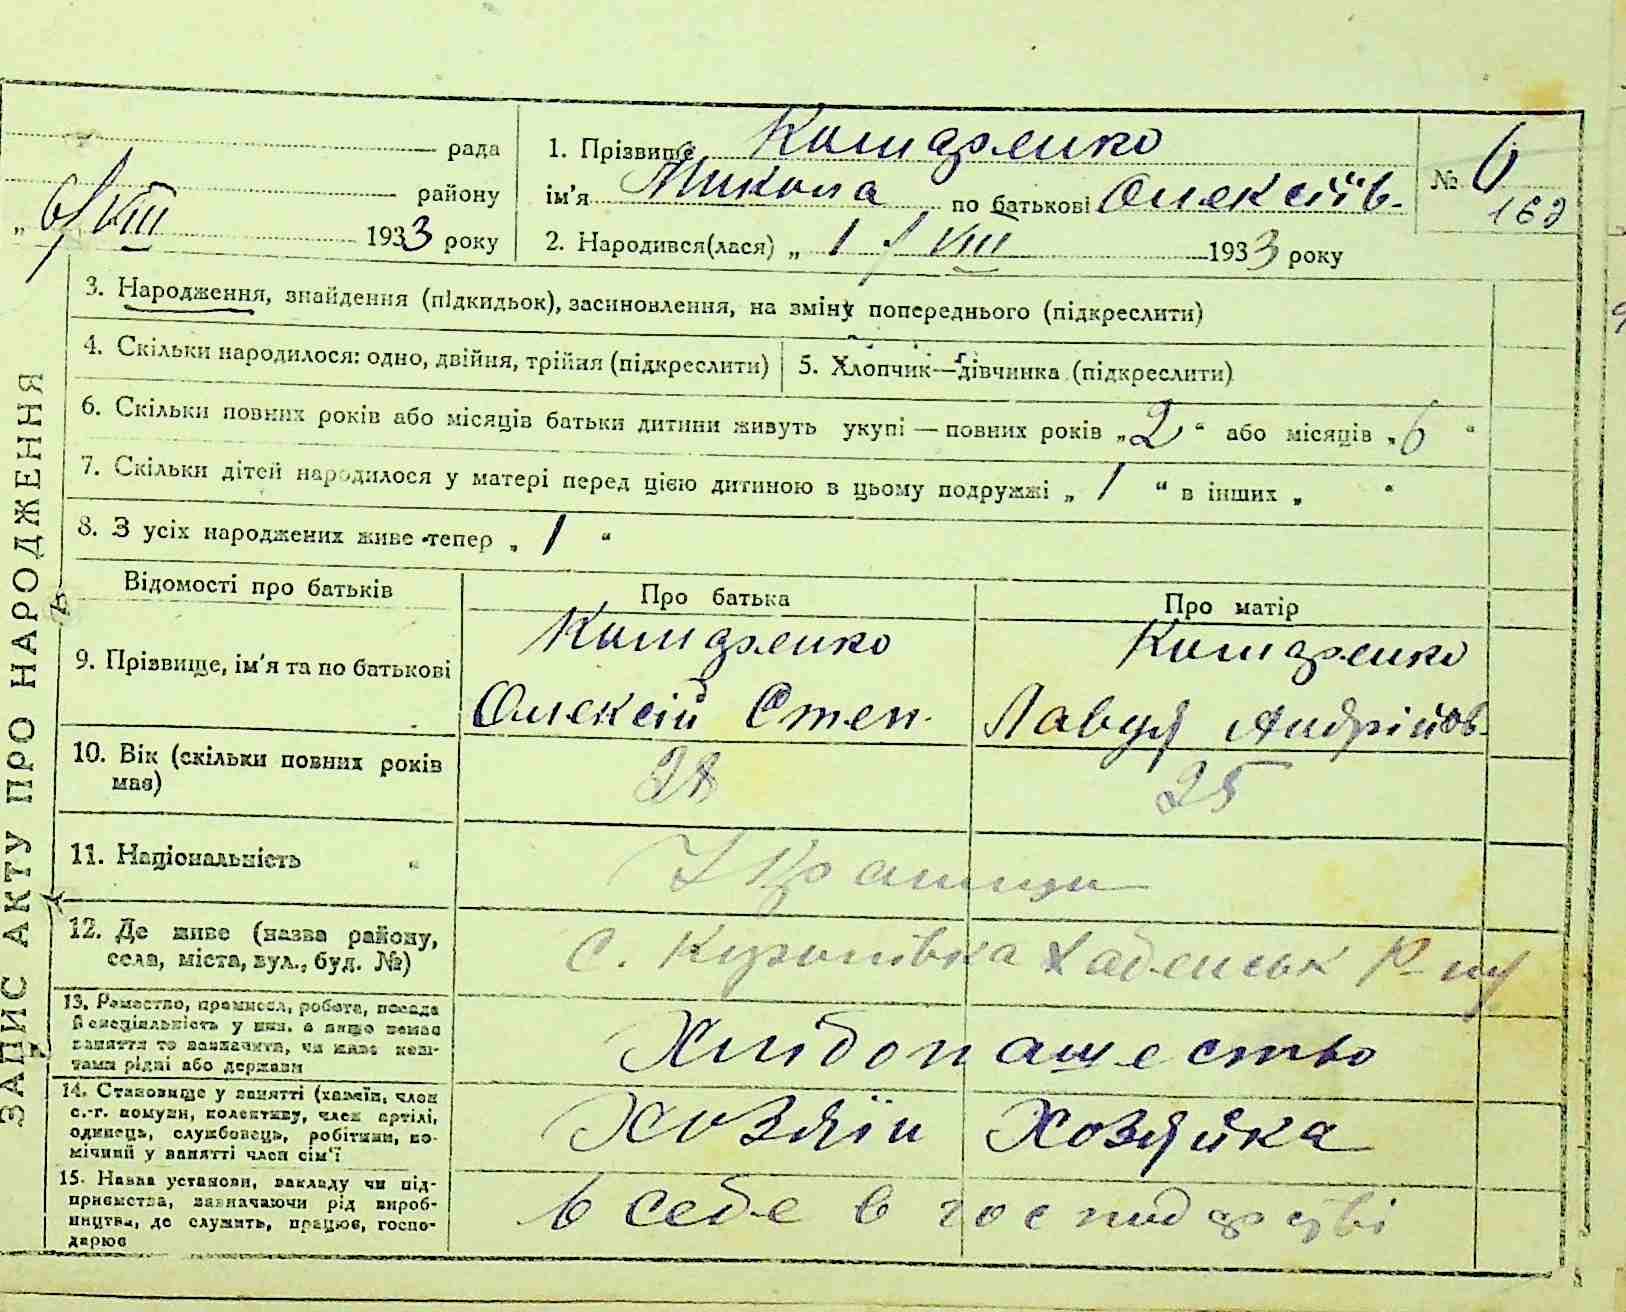 ЗАПИС АКТУ ПРО НАРОДЖЕННЯ
рада
району
„ 6/VIII 1933 року
1. Прізвище
ім'я Микола по батькові Олексіїв.
№ 6
162
2. Народився(лася) „ 1 / VIII 1933 року
3. Народження, знайдення (підкидьок), засиновлення, на зміну попереднього (підкреслити)
4. Скільки народилося: одно, двійня, трійня (підкреслити)
5. Хлопчик—дівчинка (підкреслити)
6. Скільки повних років або місяців батьки дитини живуть укупі — повних років „2“ або місяців „6“
7. Скільки дітей народилося у матері перед цією дитиною в цьому подружжі „ 1 “ в інших „ “
8. З усіх народжених живе тепер „ 1 “
Відомості про батьків
Про батька
Про матір
9. Прізвище, ім'я та по батькові
Олексій Степ.
Андрійов.
10. Вік (скільки повних років
має)
28
25
11. Національність
Українци
12. Де живе (назва району,
села, міста, вул., буд. №)
с. Хабенськ Р-ну
13. Ремество, промисел, робота, посада
й спеціяльність у них, а якщо немає
заняття то зазначити, чи живе кош-
тами рідні або держави
Хлібопашество
14. Становище у занятті (хазяїн, член
с.-г. комуни, колективу, член артілі,
одинець, службовець, робітник, по-
мічний у занятті член сім'ї
Хозяїн
Хозяйка
15. Назва установи, закладу чи під-
приємства, зазначаючи рід вироб-
ництва, де служить, працює, госпо-
дарює
в себе в господарстві